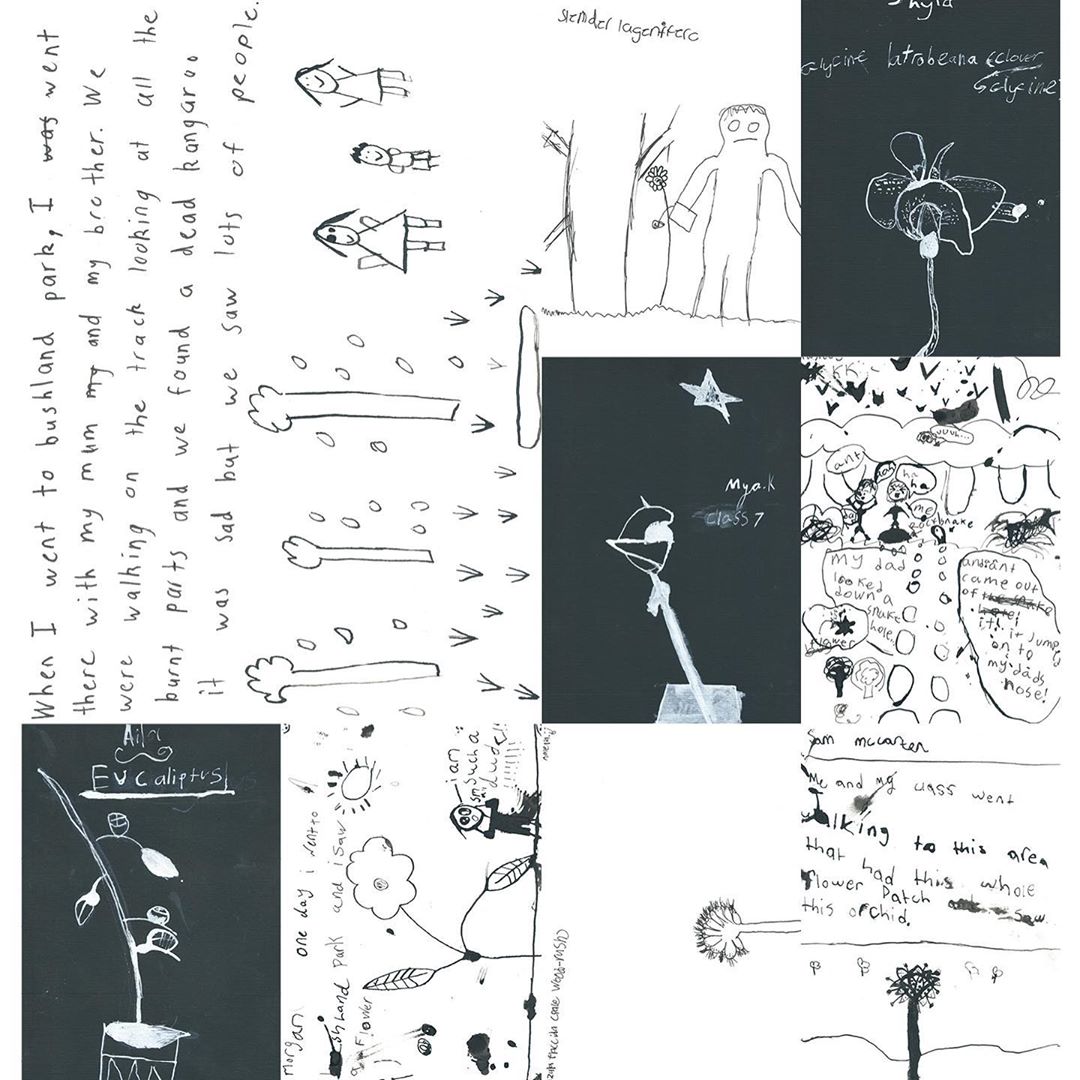 When I went to bushland park, I was went
there with my mum my and my brother. We
were walking on the track looking at all the
burnt parts and we found a dead kangaroo
it was sad but we saw lots of people.
slender lagenifera
Glycine latrobeana (clover
Glycine
Mya.K
Class 7
uuuh...
ant
ha
ha
me
my dad
looked
down a
snake
hole.
and ant
came out
of the snake
hole!
it jump
on to
my dads
nose!
flower
Aila
Eucaliptus
Morgan
one day i went to
bushland Park and i saw
a Flower
i am
such a
dude!!
Sam mccarten
Me and my class went
walking to this area
that had this whole
flower Patch saw
this orchid.